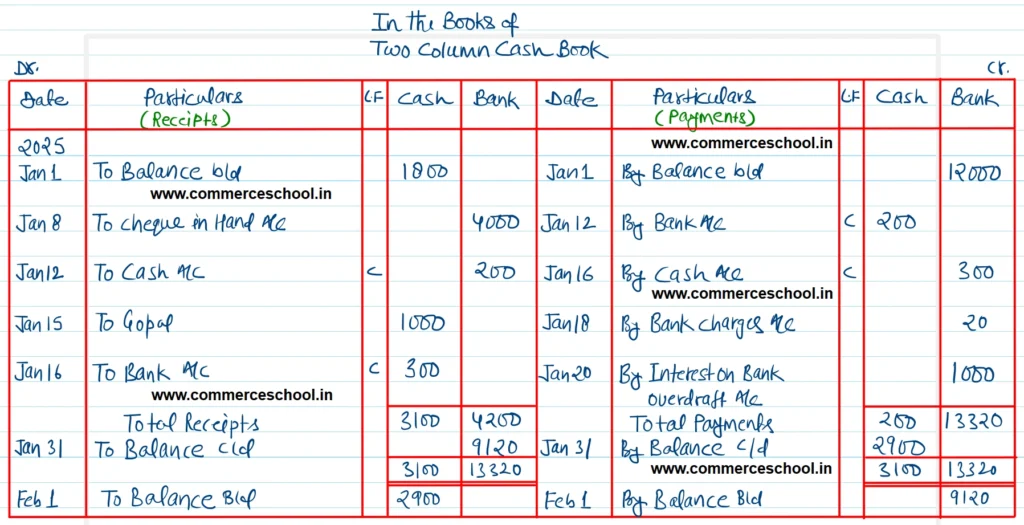 In the Books of
Two Column Cash Book
Dr. Cr.
Date Particulars LF Cash Bank Date Particulars LF Cash Bank
(Receipts) (Payments)
2025 www.commerceschool.in
Jan 1 To Balance b/d 1800 Jan 1 By Balance b/d 12000
www.commerceschool.in
Jan 8 To cheque in Hand A/c 4000 Jan 12 By Bank A/c C 200
Jan 12 To Cash A/C C 200 Jan 16 By Cash A/c C 300
www.commerceschool.in
Jan 15 To Gopal 1000 Jan 18 By Bank charges A/c 20
Jan 16 To Bank A/C C 300 Jan 20 By Interest on Bank 1000
www.commerceschool.in overdraft A/c
Total Receipts 3100 4200 Total Payments 200 13320
Jan 31 To Balance c/d 9120 Jan 31 By Balance c/d 2900
3100 13320 www.commerceschool.in 3100 13320
Feb 1 To Balance B/d 2900 Feb 1 By Balance B/d 9120